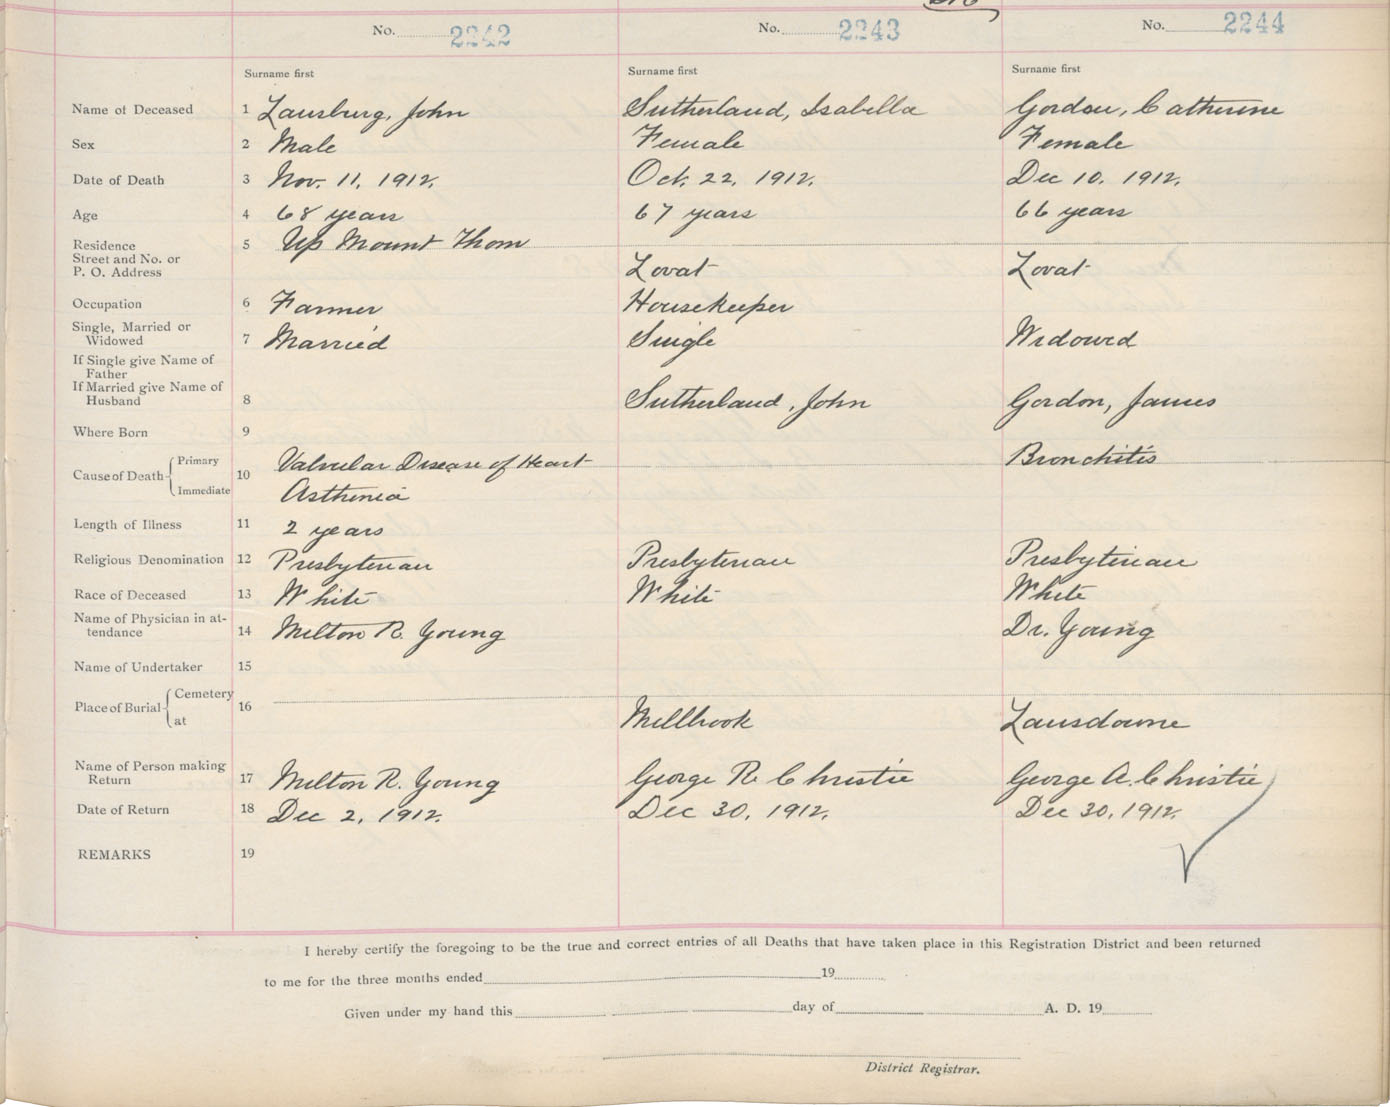 No. 2242 No. 2243 No. 2244
Surname first Surname first Surname first
Name of Deceased 1 Lansburg, John Sutherland, Isabella Gordon, Catherine
Sex 2 Male Female Female
Date of Death 3 Nov. 11, 1912. Oct. 22, 1912. Dec 10, 1912.
Age 4 68 years 67 years 66 years
Residence 5 Up Mount Thom
Street and No. or
P. O. Address Lovat Lovat
Occupation 6 Farmer Housekeeper
Single, Married or
Widowed 7 Married Single Widowed
If Single give Name of
Father
If Married give Name of
Husband 8 Sutherland, John Gordon, James
Where Born 9
Cause of Death 10 Primary Valvular Disease of Heart Bronchitis
Immediate Asthenia
Length of Illness 11 2 years
Religious Denomination 12 Presbyterian Presbyterian Presbyterian
Race of Deceased 13 White White White
Name of Physician in at-
tendance 14 Melton R. Young Dr. Young
Name of Undertaker 15
Place of Burial 16 Cemetery
at Millbrook Lansdowne
Name of Person making
Return 17 Melton R. Young George R. Christie George A. Christie
Date of Return 18 Dec 2, 1912. Dec 30, 1912. Dec 30, 1912.
REMARKS 19
I hereby certify the foregoing to be the true and correct entries of all Deaths that have taken place in this Registration District and been returned
to me for the three months ended 19
Given under my hand this day of A. D. 19
District Registrar.